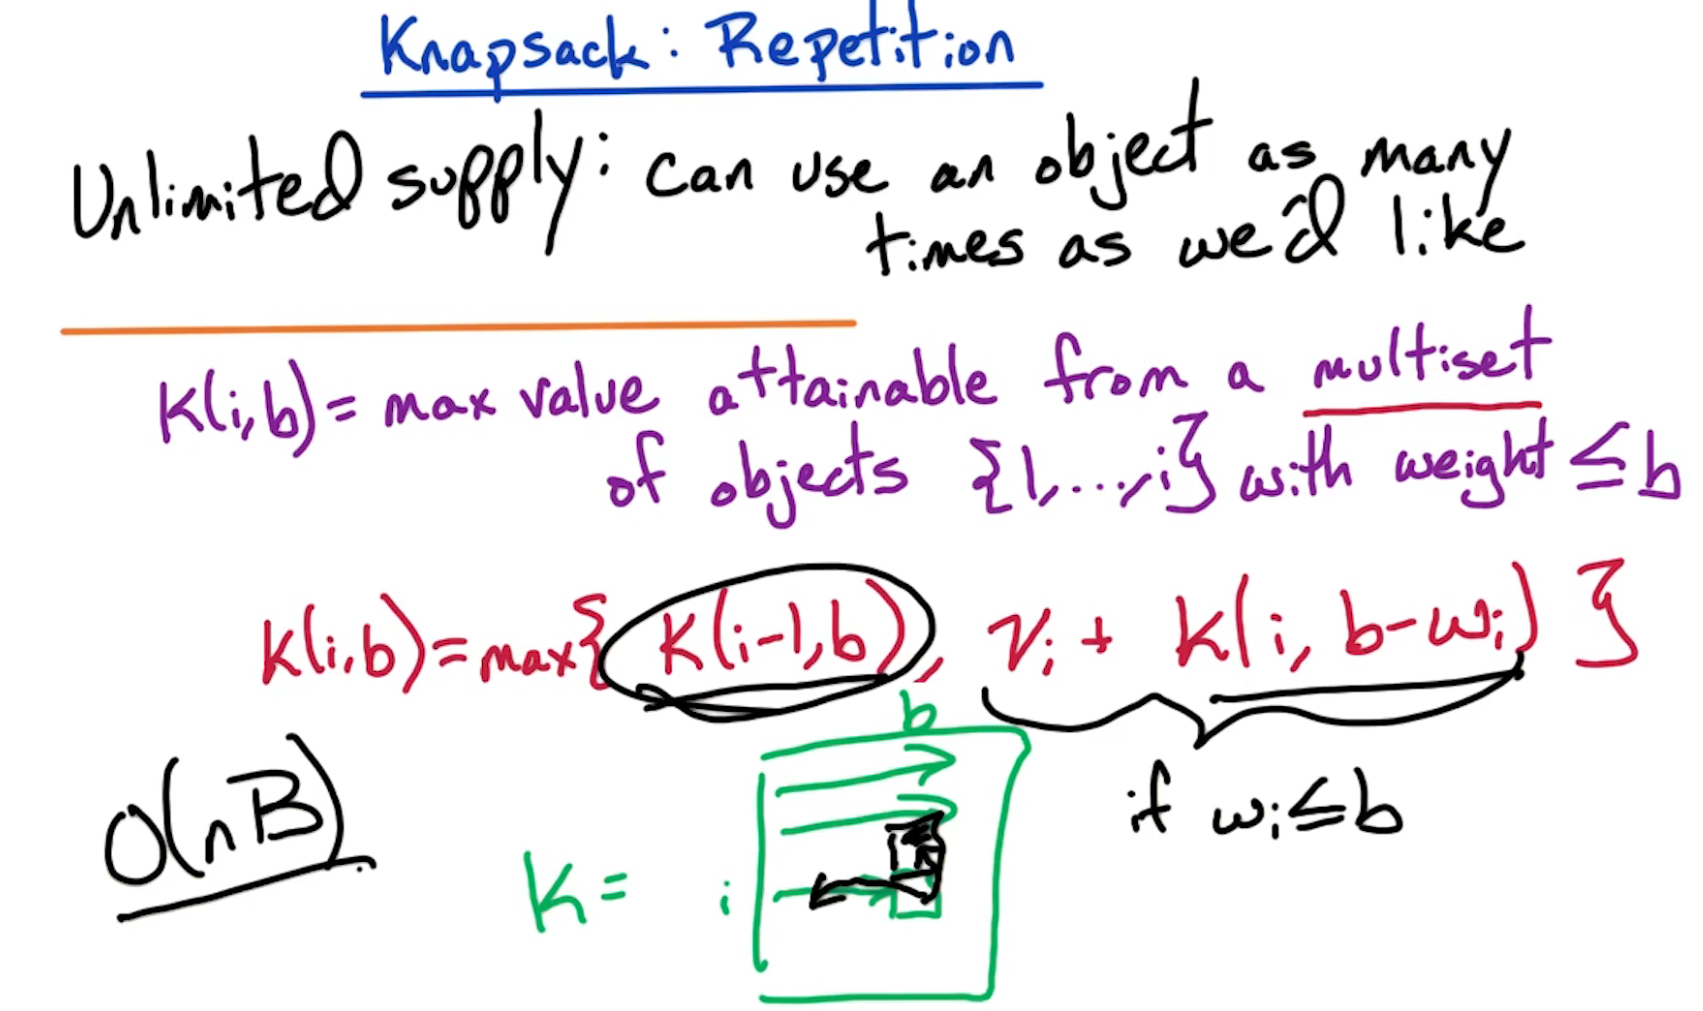 Knapsack: Repetition
Unlimited supply: can use an object as many
times as we'd like
K(i,b) = max value attainable from a multiset
of objects {1,...,i} with weight ≤ b
K(i,b) = max{ K(i-1,b), v_i + K(i, b-w_i) }
if w_i ≤ b
O(nB)
b
K = i